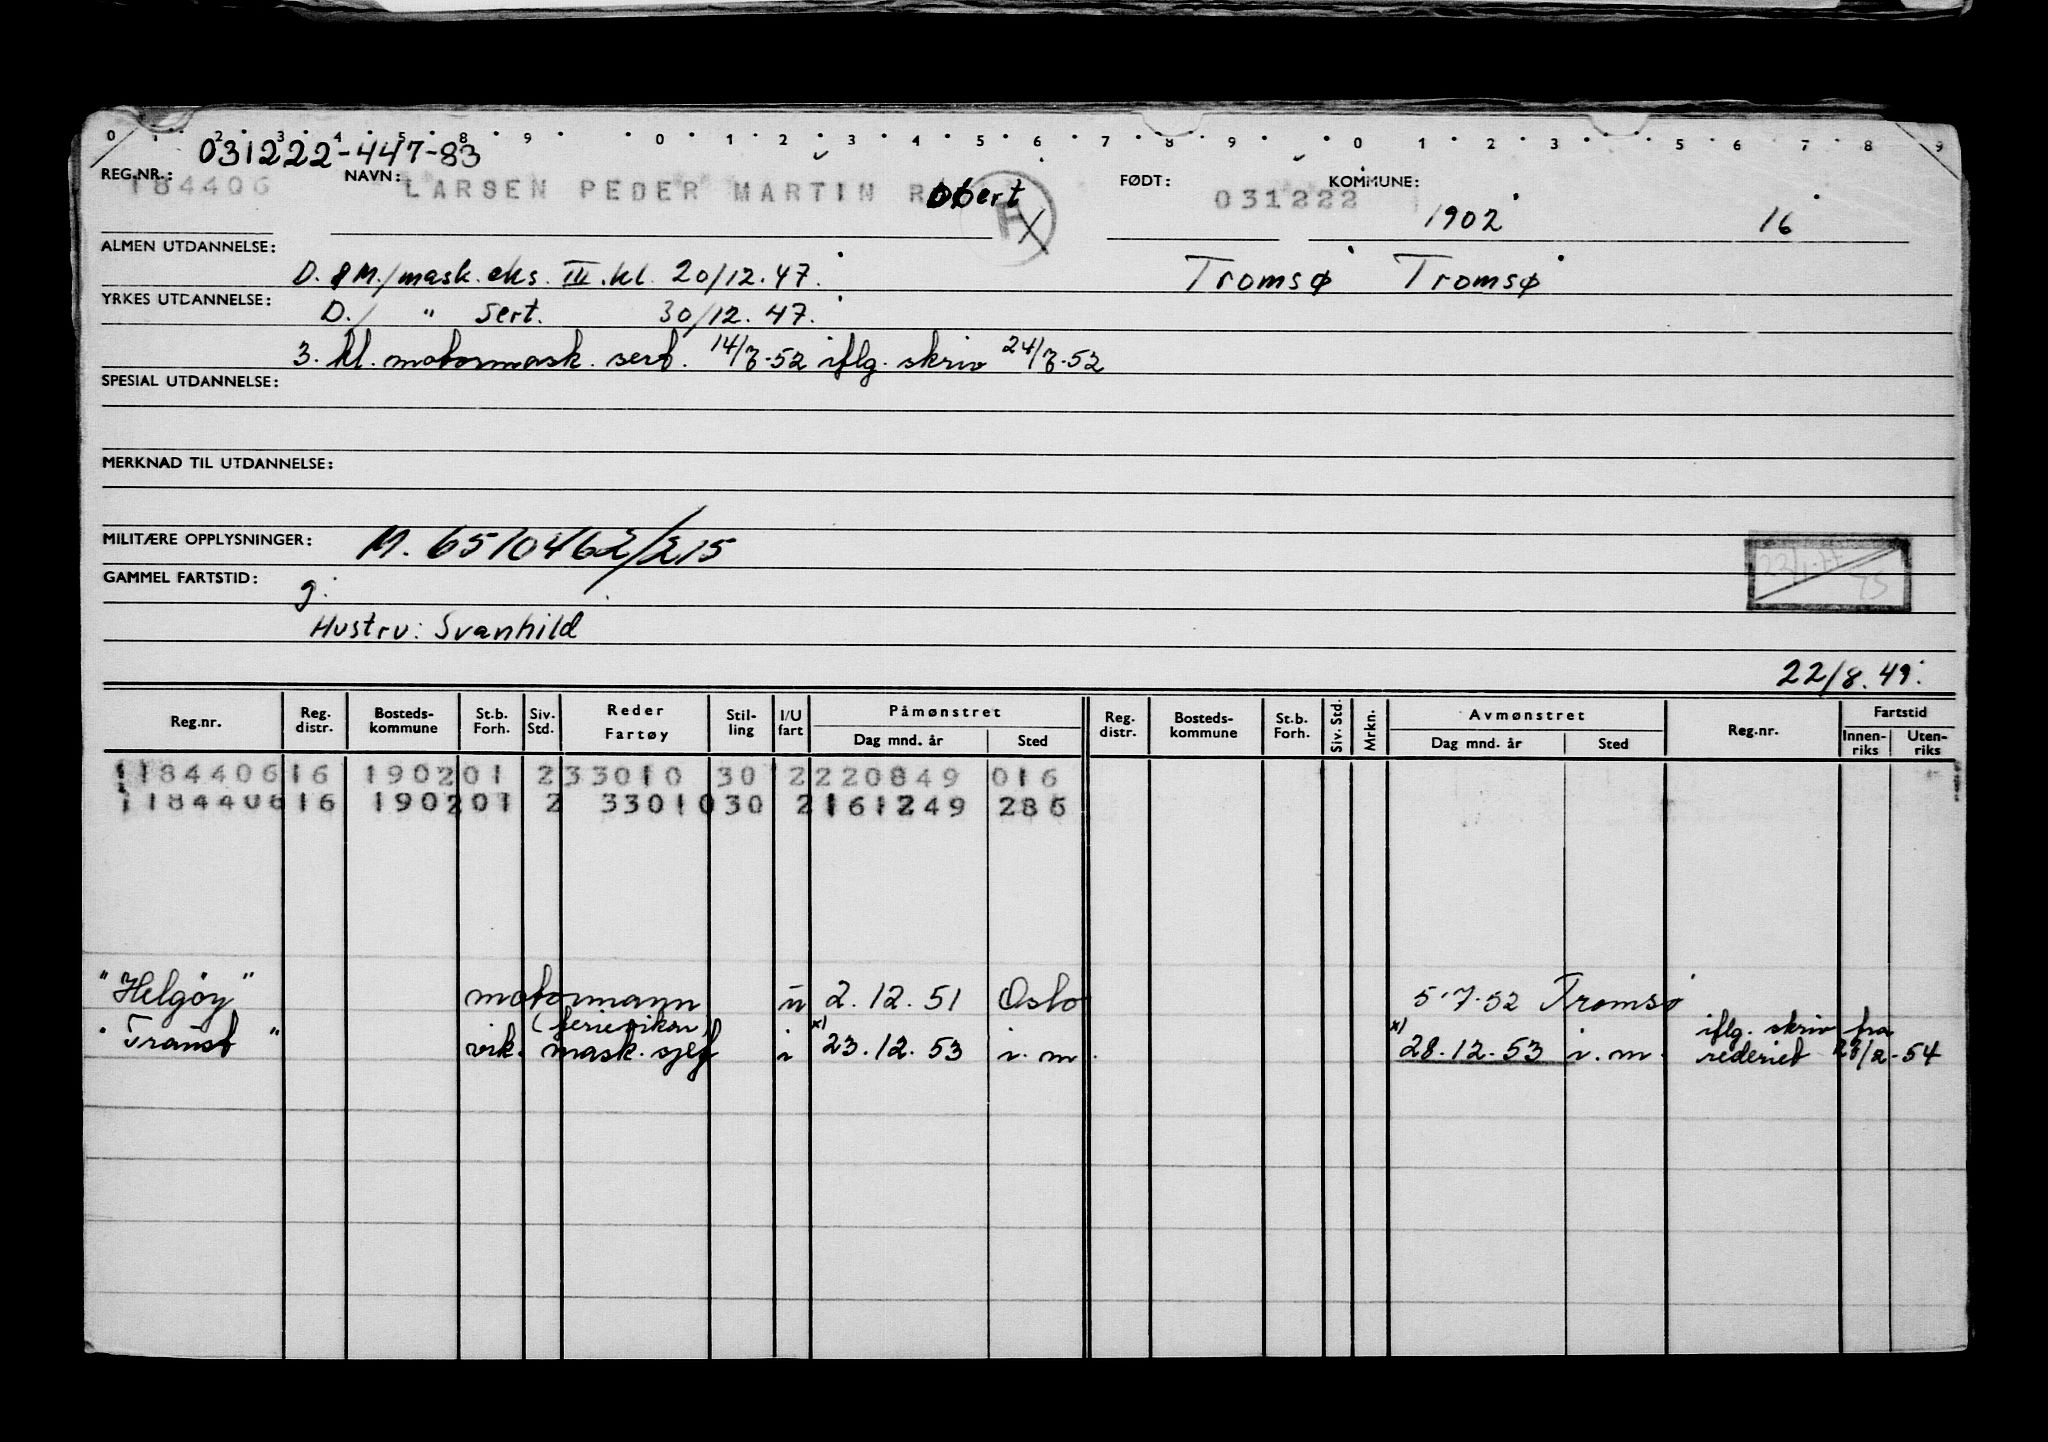 0 1 2 3 4 5 8 9 0 1 2 3 4 5 6 7 8 9 0 1 2 3 5 6 7 8 9
031222-447-83
REG.NR.: 184406 NAVN: LARSEN PEDER MARTIN Robert FØDT: 031222 KOMMUNE:
1902 16
ALMEN UTDANNELSE:
D. & M./mask. eks. III. kl. 20/12.47. Tromsø Tromsø
YRKES UTDANNELSE:
D./ " Sert. 30/12.47.
3. kl. motormask. sert. 14/7-52 iflg. skriv 24/7-52
SPESIAL UTDANNELSE:
MERKNAD TIL UTDANNELSE:
MILITÆRE OPPLYSNINGER: M. 6510462/215
GAMMEL FARTSTID: g.
Hustru: Svanhild
22/8.49.
Reg.nr. Reg. distr. Bosteds-kommune St.b. Forh. Siv. Std. Reder Fartøy Stil-ling I/U fart Påmønstret Dag mnd. år Sted Reg. distr. Bosteds-kommune St.b. Forh. Siv. Std. Mrkn. Avmønstret Dag mnd. år Sted Reg.nr. Fartstid Innen-riks Uten-riks
118440616 190201 233010 30 2220849 016
118440616 190201 2 3301030 2161249 286
"Helgøy" motormann u 2.12.51 Oslo 5.7.52 Tromsø
(ferievikar) iflg. skriv fra
vik. mask. sjef i x) 23.12.53 i.m. x) 28.12.53 i.m. rederiet -54